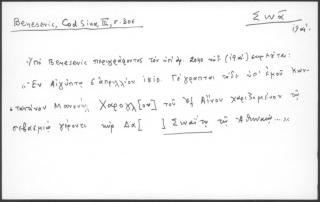 Benesevic, Cod Sina III, σ. 206
Σινᾶ
19αι.
Ὑπὸ Benesevic περιγράφοντος τὸν ὑπ' ἀρ. κώδ. (19αι.)
«Ἐν Αἰγύπτῳ 6 ἀπριλλίου 1810. Γέγραπται τόδε ὑπ' ἐμοῦ Κων-
σταντίνου Μανουὴλ Χαρογλ[ου] τοῦ ἐξ Αἴνου χαριζομένου τῷ
σεβασμίῳ γέροντι κὺρ Δα[ ] Σιναΐτῃ τῷ